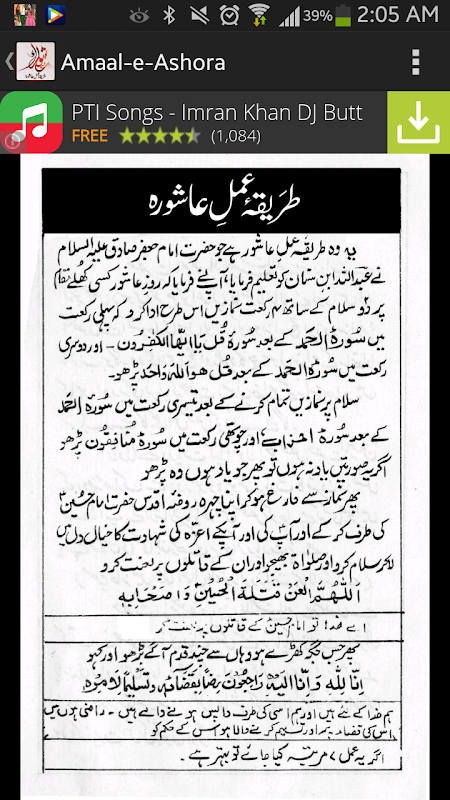 39% 2:05 AM
Amaal-e-Ashora
PTI Songs - Imran Khan DJ Butt
FREE (1,084)
طریقۂ عملِ عاشورہ
یہ وہ طریقۂ عملِ عاشور ہے جو حضرت امام جعفر صادق علیہ السلام
نے عبداللہ ابن سنان کو تعلیم فرمایا، آپؑ نے فرمایا کہ روزِ عاشور کسی کھلے مقام
پر دو سلام کے ساتھ ۴ رکعت نمازیں اس طرح ادا کرو کہ پہلی رکعت
میں سورۃ الحمد کے بعد سورۃ قُل یا ایھا الکفرون - اور دوسری
رکعت میں سورۃ الحمد کے بعد قُل ھو اللہ احد پڑھو۔
سلام پر نمازیں تمام کرنے کے بعد تیسری رکعت میں سورۃ الحمد
کے بعد سورۃ احزاب اور چوتھی رکعت میں سورۃ منافقون پڑھو
اگر یہ صورتیں یاد نہ ہوں تو پھر جو یاد ہوں وہ پڑھو
پھر نماز سے فارغ ہو کر اپنا چہرہ روضۂ اقدس حضرت امام حسینؑ
کی طرف کر کے اور آپؑ کی اور آپکے اعزہ کی شہادت کا خیال دل میں
لا کر سلام کرو اور صلواۃ بھیجو اور ان کے قاتلوں پر لعنت کرو
اَللّٰهُمَّ الْعَنْ قَتَلَةَ الْحُسَيْنِ وَاَصْحَابِهٖ
اے خدا! تو امام حسینؑ کے قاتلوں پر لعنت کر
پھر جس جگہ کھڑے ہو وہاں سے چند قدم آگے بڑھو اور کہو
اِنَّا لِلّٰهِ وَاِنَّا اِلَيْهِ رَاجِعُوْنَ رِضًا بِقَضَائِهٖ وَتَسْلِيْمًا لِاَمْرِهٖ
ہم خدا کے لئے ہیں اور ہم اسی کی طرف واپس ہونے والے ہیں - راضی ہوں میں
اس کی قضا پر اور تسلیم کرنے والا ہوں اس کے حکم کو
اگر یہ عمل ۷ مرتبہ کیا جائے تو بہتر ہے۔